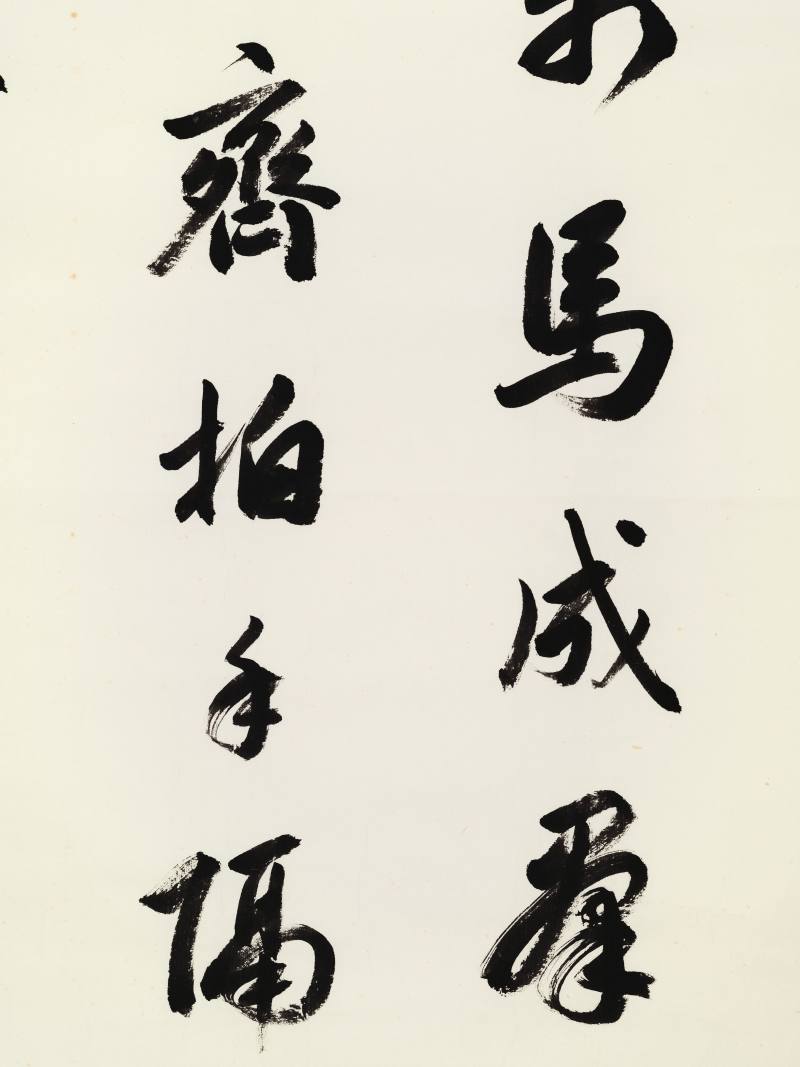 馬成羣
齊拍手隔